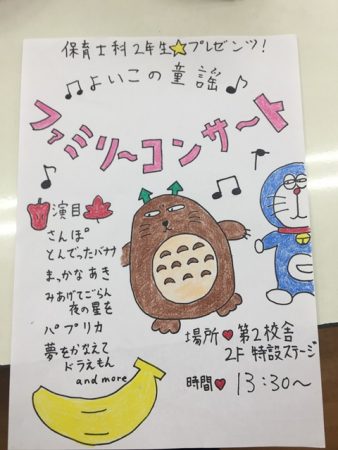 保育士科2年生☆プレゼンツ!
♫よいこの童謡♪
ファミリ～コンサ～ト
演目
さんぽ
とんでったバナナ
まっかなあき
みあげてごらん
夜の星を
パプリカ
夢をかなえて
ドラえもん
and more
場所♥第2校舎
2F 特設ステージ
時間♥13:30～